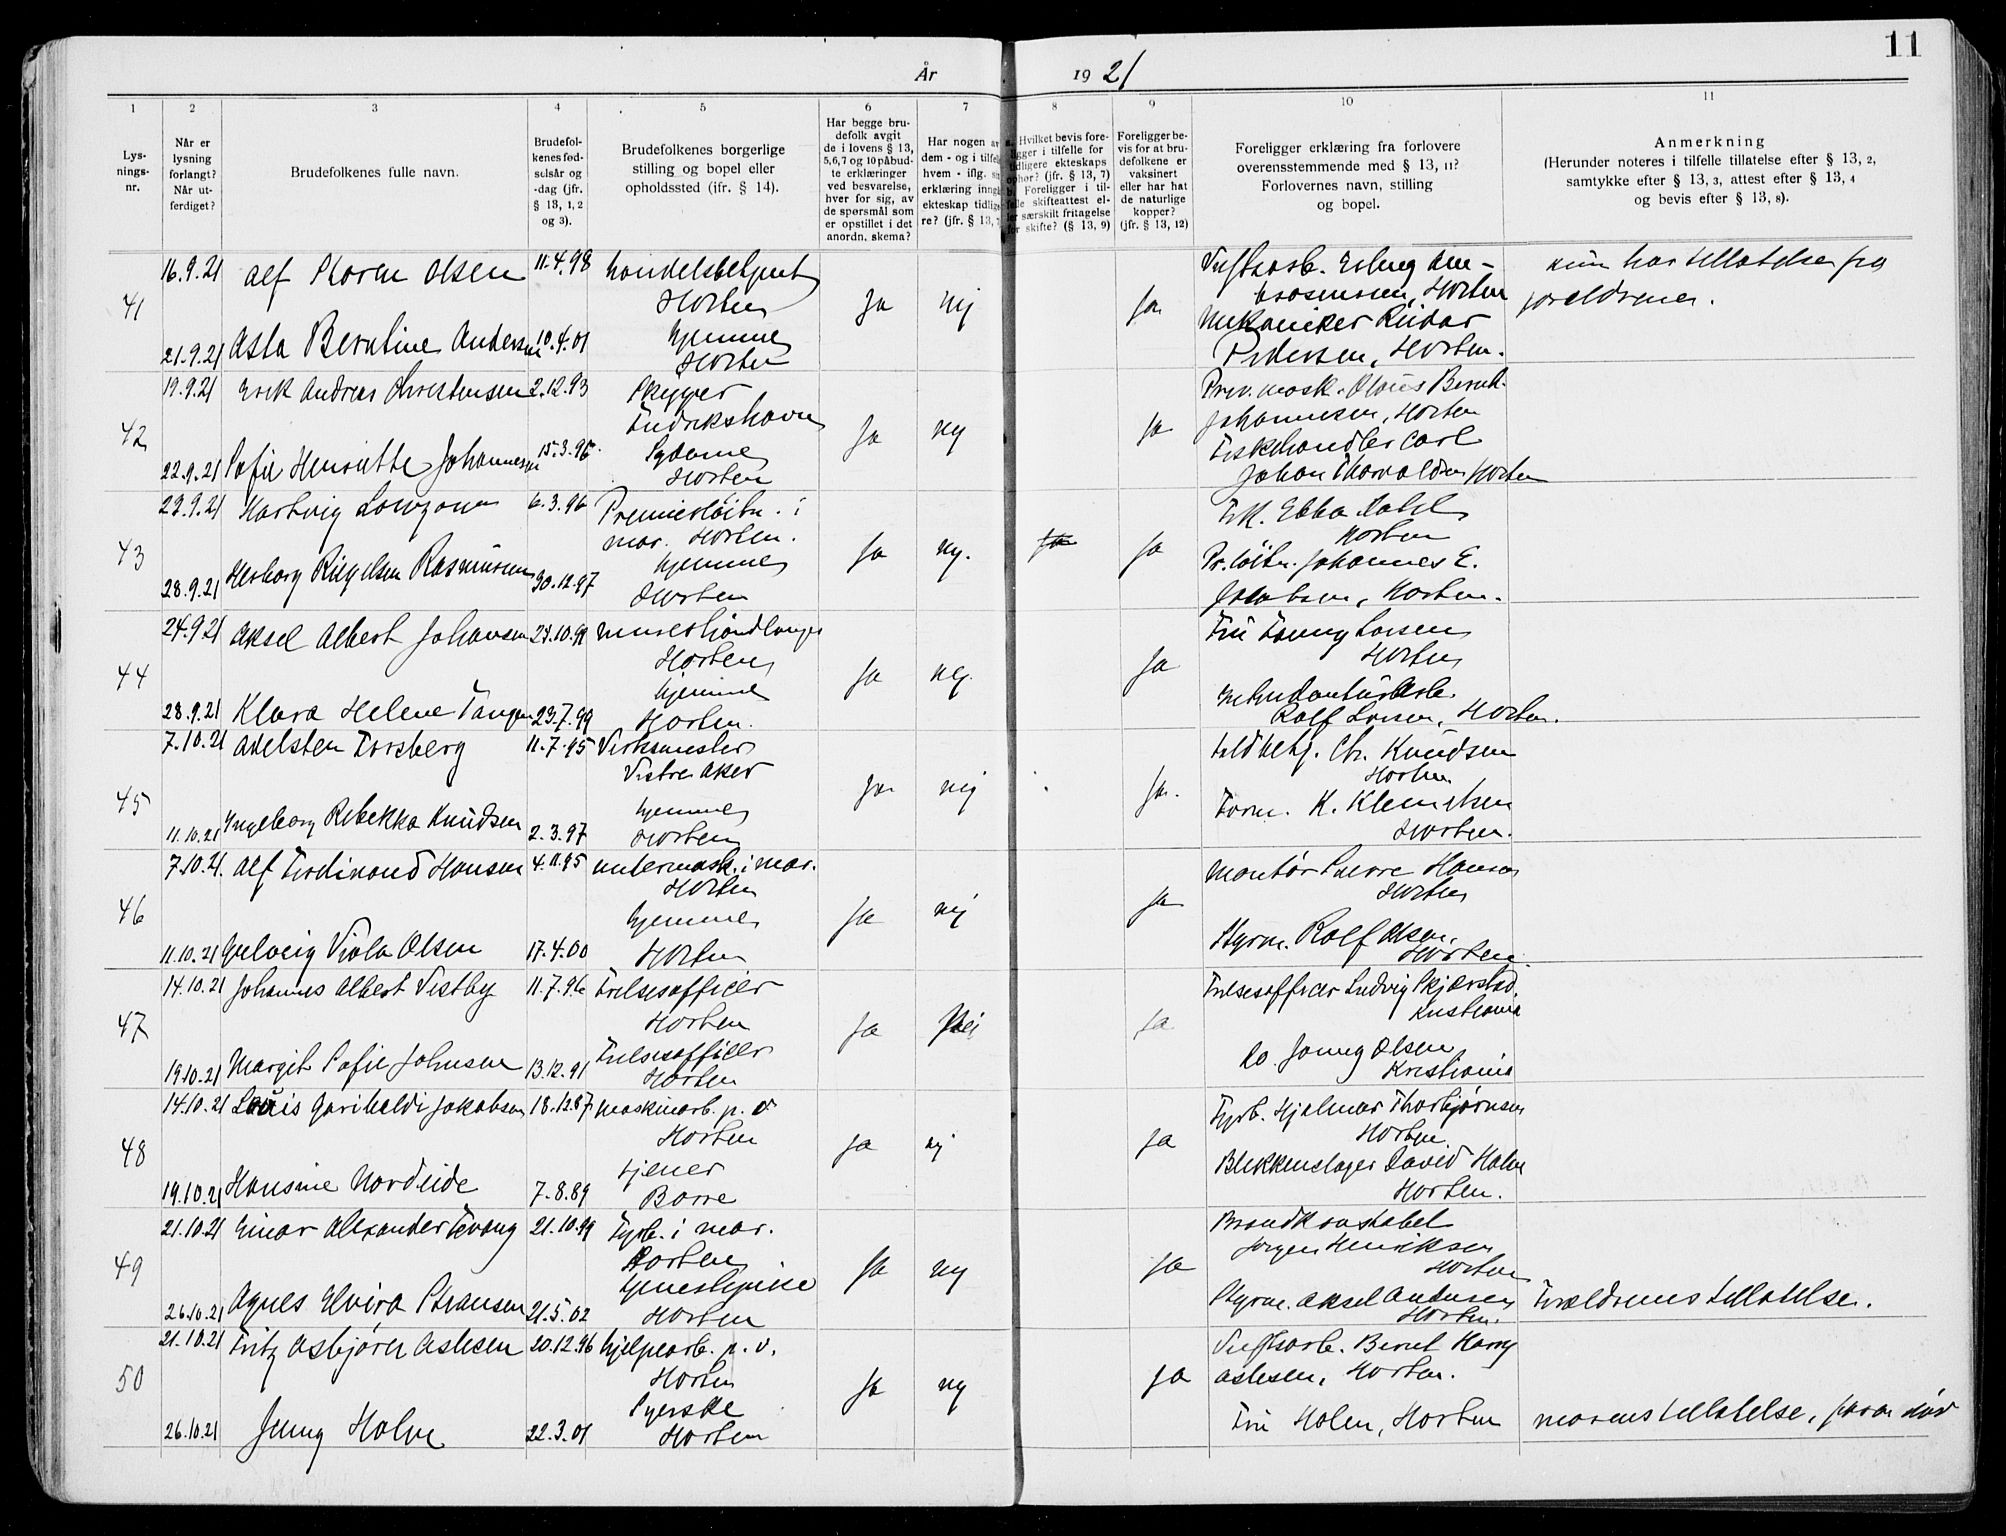 År 1921
11
1
2
3
4
5
6
7
8
9
10
11
Lys-
nings-
nr.
Når er
lysning
forlangt?
Når ut-
ferdiget?
Brudefolkenes fulle navn.
Brudefol-
kenes fød-
selsår og
-dag (jfr.
§ 13, 1, 2
og 3).
Brudefolkenes borgerlige
stilling og bopel eller
opholdssted (ifr. § 14).
Har begge bru-
defolk avgit
de i lovens § 13,
5,6,7 og 10 påbud-
te erklæringer
ved besvarelse,
hver for sig, av
de spørsmål som
er opstillet i det
anordn. skema?
Har nogen av
dem - og i tilfelle
hvem - iflg.
erklæring inngått
ekteskap tidlige-
re? (jfr. § 13, 7)
a. Hvilket bevis fore-
ligger i tilfelle for
tidligere ekteskaps
ophør? (jfr. § 13, 7)
b. Foreligger i til-
felle skifteattest el-
ler særskilt fritagelse
for skifte? (§ 13, 9)
Foreligger be-
vis for at bru-
defolkene er
vaksinert
eller har hat
de naturlige
kopper?
(jfr. § 13, 12)
Foreligger erklæring fra forlovere
overensstemmende med § 13, 11?
Forlovernes navn, stilling
og bopel.
Anmerkning
(Herunder noteres i tilfelle tillatelse efter § 13, 2,
samtykke efter § 13, 3, attest efter § 13, 4
og bevis efter § 13, 8).
41
16.9.21 Alf Olsen 11.4.98 handelsbetjent
Horten
Ja nej ja
Horten
21.9.21 Asta Berntine Andersen 10.4.01 hjemme
Horten
Mekaniker Reidar
Pedersen, Horten.
hun har tillatelse fra
foreldrene.
42
19.9.21 Erik Andreas Christensen 2.12.93 Skipper
Fredrikshavn
Ja nej ja
Olaus Bernh.
Johannesen, Horten
22.9.21 Sofie Henriette Johannesen 15.3.96. Sydame
Horten
Fiskehandler Carl
Johan Thorvaldsen Horten
43
23.9.21 Hartvig 6.3.96 Premierløitn. i
mar. Horten.
Ja nej. ja ja
Frk. Ebba Dahl
Horten
28.9.21 Rasmussen 30.12.97 hjemme
Horten
Pr. løitn. Johannes E.
Jakobsen, Horten.
44
24.9.21 Aksel Albert Johansen murerhåndlanger
Horten
Ja nej. ja
Fru Fanny Larsen
Horten
28.9.21 Klara Helene Tangen 23.7.99 hjemme
Horten.
Rolf Larsen, Horten.
45
7.10.21 Adelsten Forsberg 11.7.95 Verksmester
Vestre Aker
Ja nej ja.
Chr. Knudsen
Horten.
11.10.21 Ingeborg Rebekka Knudsen 2.3.97 hjemme
Horten
Form. K. Klemetsen
Horten.
46
7.10.21. Alf Ferdinand Hansen 4.11.95 undermask. i mar.
Horten
Ja nej ja
Montør Sverre Hansen
Horten
11.10.21 Viola Olsen 17.4.00 hjemme
Horten
Styrm. Rolf Olsen,
Horten.
47
14.10.21 Johannes Albert Vestby 11.7.96 Frelsesofficer
Horten
Ja Nei ja
Frelsesofficer Ludvig Skjærstad,
Kristiania
19.10.21 Margit Sofie Johnsen 13.12.91 Frelsesofficer
Horten
Do. Jenny Olsen
Kristiania
48
14.10.21 Louis Garibaldi Jakobsen 18.12.87. maskinarb. p. v
Horten
Ja nej ja
Fyrb. Hjalmar Thorbjørnsen
Horten
19.10.21 Hansine Nordeide 7.8.89 tjener
Borre
Blikkenslager David Holm
Horten.
49
21.10.21 Einar Alexander Tevang 21.10.99 Fyrb. i mar.
Horten
Ja nej ja
Brandkonstabel
Jørgen Henriksen
Horten
26.10.21 Agnes Elvira Stransen 21.5.02 tjenestepike
Horten
Styrm. Aksel Andersen
Horten.
Forældrenes tillatelse.
50
21.10.21 Fritz Asbjørn Aslesen 20.12.96 hjelpearb. p. v.
Horten
Ja nej ja
Bernt Harry
Aslesen, Horten.
26.10.21 Jenny Holm 22.3.01 Syerske
Horten
Fru Holm, Horten
morens tillatelse, faren død